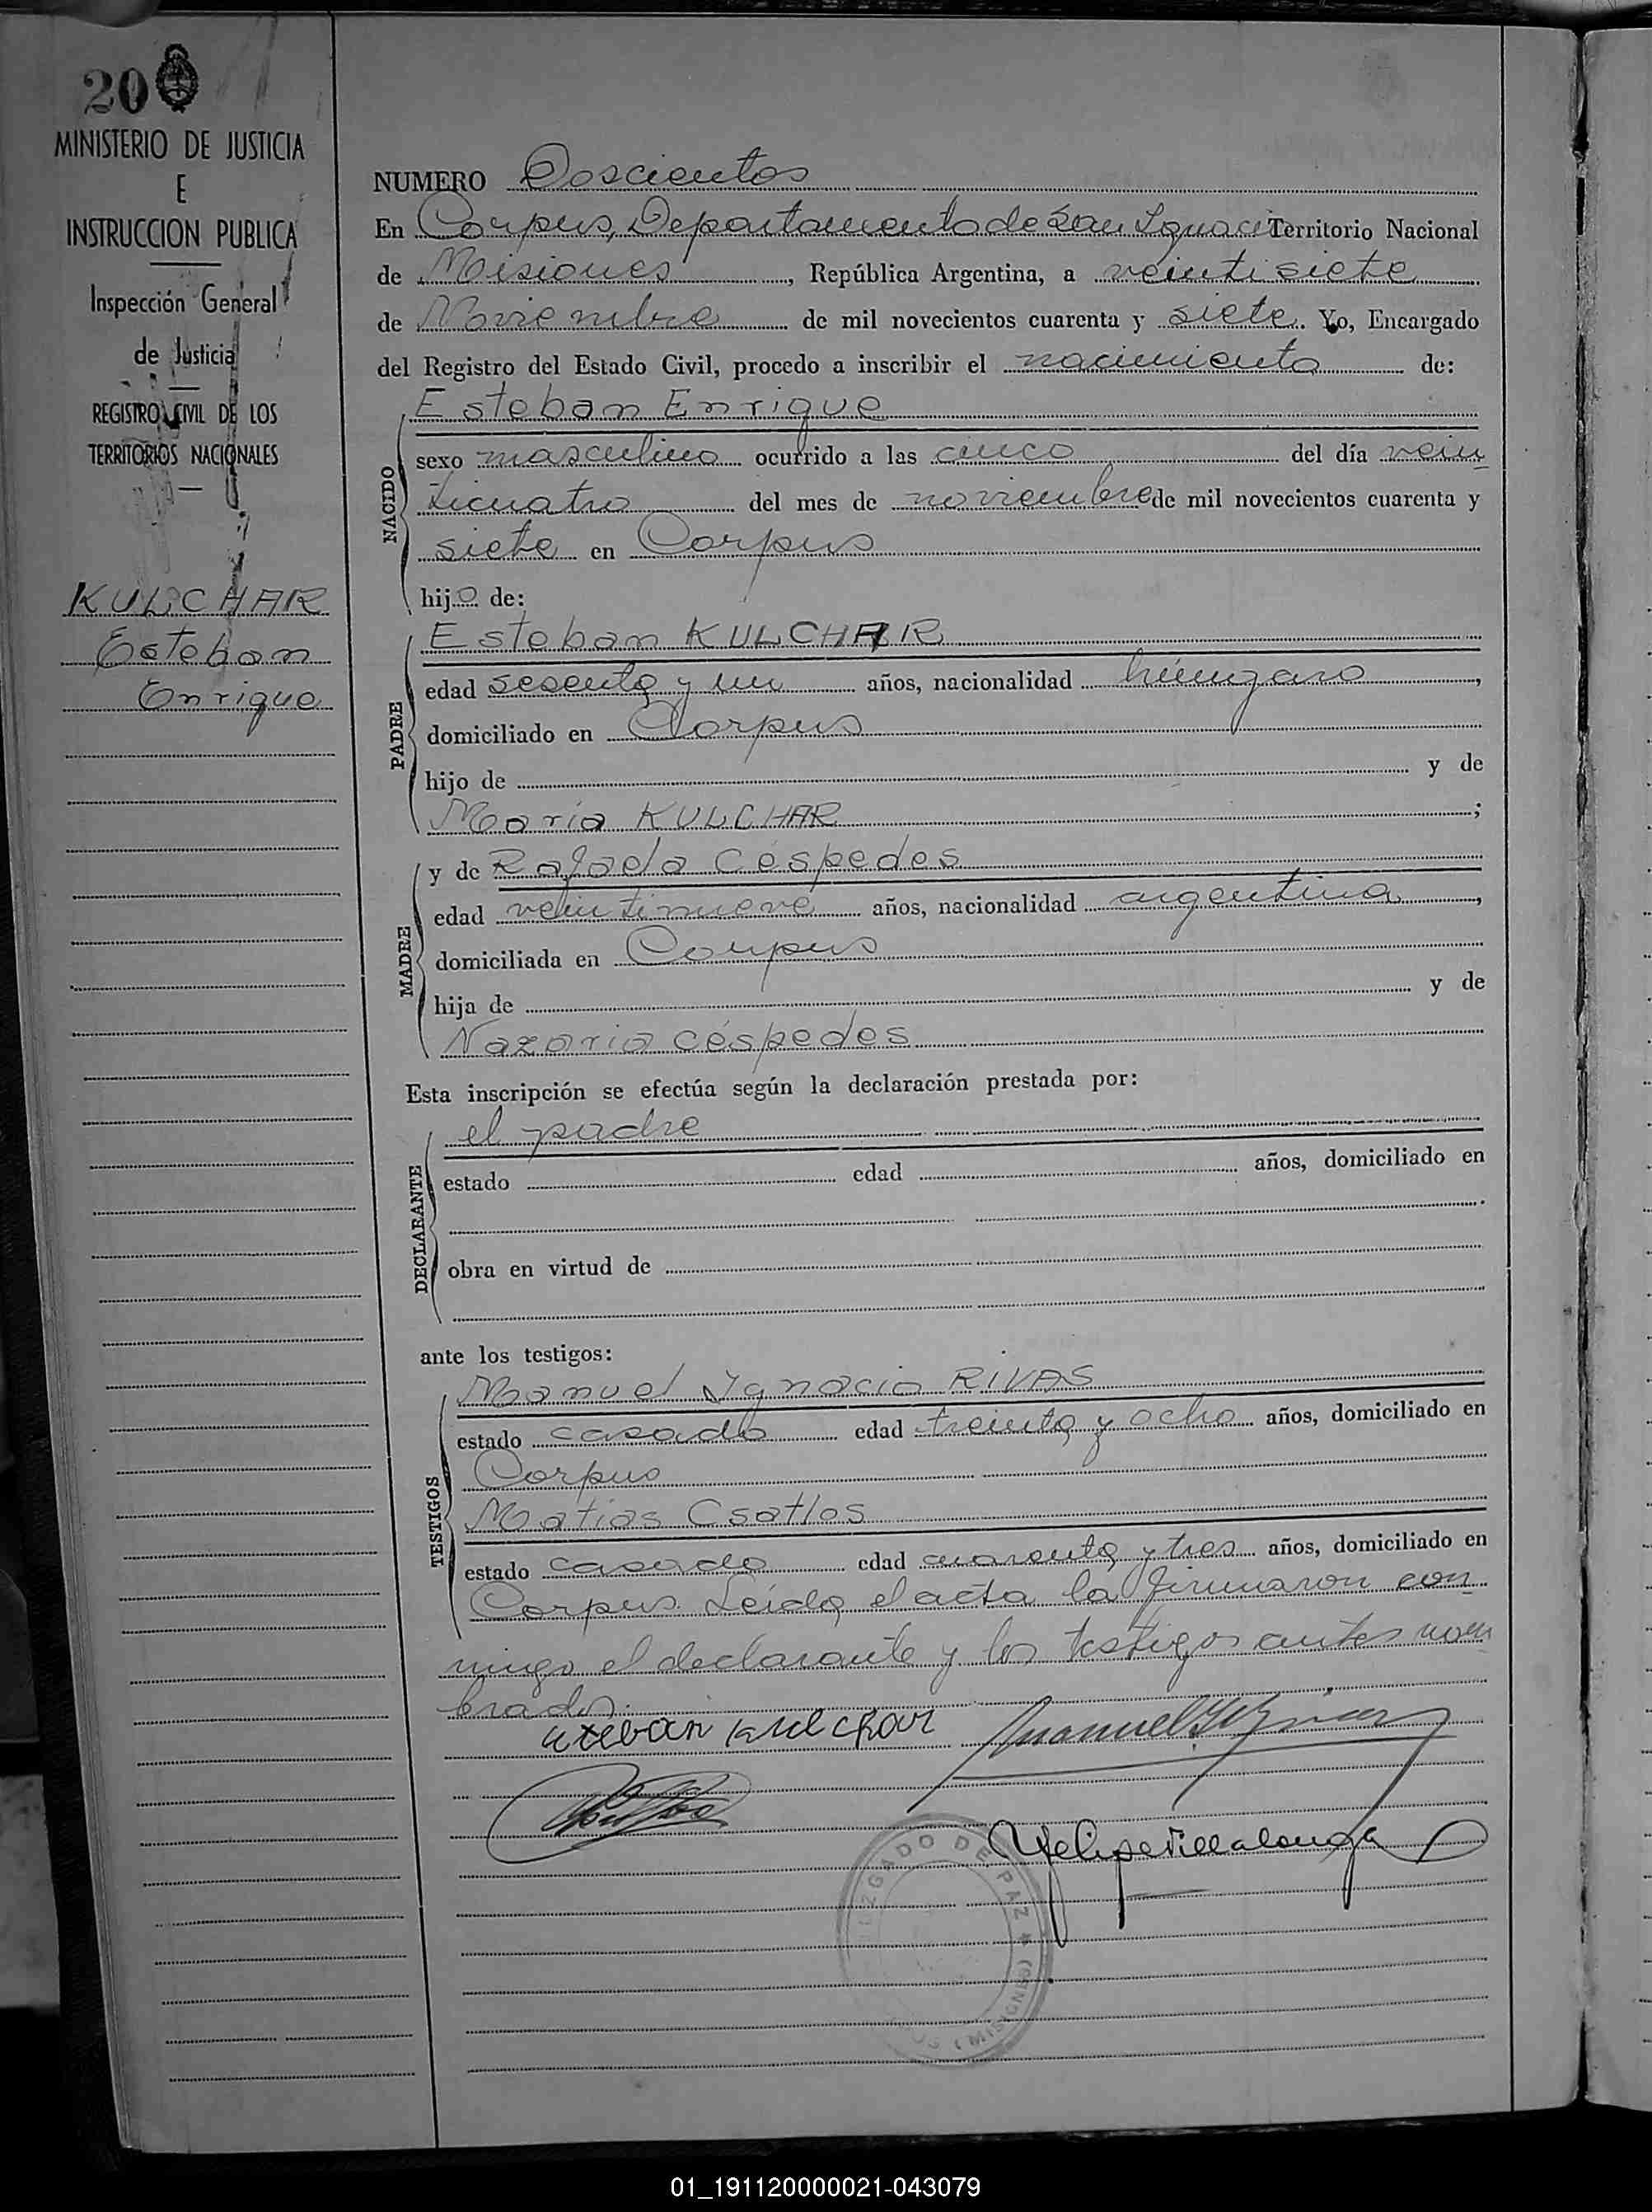 20
MINISTERIO DE JUSTICIA
E
INSTRUCCION PUBLICA
Inspección General
de Justicia
REGISTRO CIVIL DE LOS
TERRITORIOS NACIONALES
KULCHAR
Esteban
Enrique
NUMERO Doscientos
En Corpus, Departamento de San Ignacio Territorio Nacional
de Misiones, República Argentina, a veintisiete
de Noviembre de mil novecientos cuarenta y siete. Yo, Encargado
del Registro del Estado Civil, procedo a inscribir el nacimiento de:
Esteban Enrique
NACIDO
sexo masculino ocurrido a las cinco del día vein
ticuatro del mes de noviembre de mil novecientos cuarenta y
siete en Corpus
hijo de:
Esteban KULCHAR
PADRE
edad sesenta y un años, nacionalidad húngaro,
domiciliado en Corpus
hijo de y de
María KULCHAR;
y de Rafaela Céspedes
MADRE
edad veintinueve años, nacionalidad argentina,
domiciliada en Corpus
hija de y de
Nazaria céspedes
Esta inscripción se efectúa según la declaración prestada por:
el padre
DECLARANTE
estado edad años, domiciliado en
obra en virtud de
ante los testigos:
Manuel Ignacio RIVAS
TESTIGOS
estado casado edad treinta y ocho años, domiciliado en
Corpus
Matias Csatlos
estado casado edad cuarenta y tres años, domiciliado en
Corpus. Leída el acta la firmaron con
migo el declarante y los testigos antes nom
brados.
esteban kulchar
Felipe Villalonga
JUZGADO DE PAZ (MISIONES)
01_191120000021-043079